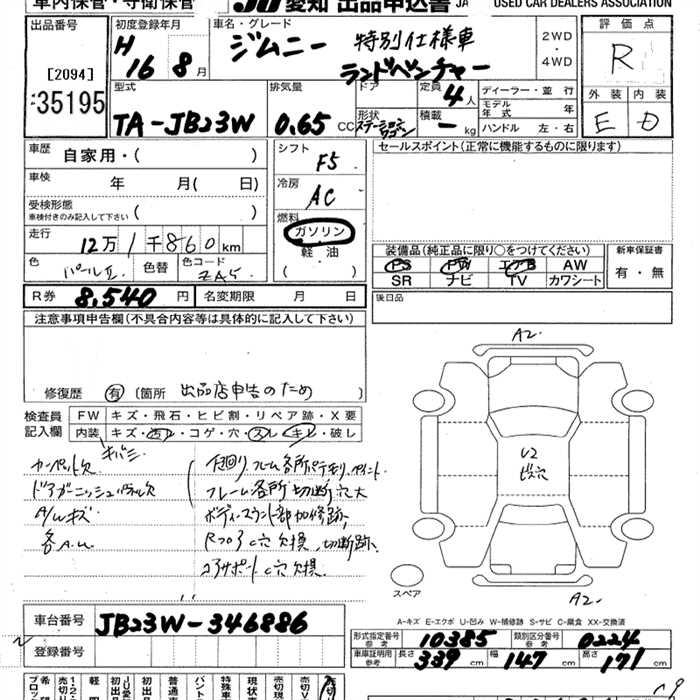 車内保管・守衛保管 JU 愛知 出品申込書 JA USED CAR DEALERS ASSOCIATION
出品番号 初度登録年月 車名・グレード 2WD ・ 4WD 評価点
H 16 8月 ジムニー 特別仕様車 R
[2094] ランドベンチャー
35195 型式 排気量 ドア 定員 4人 ディーラー・並行 外装 内装
TA-JB23W 0.65 CC 形状 ステーションワゴン 積載 - kg モデル年式 年 E D
ハンドル 左・右
車歴 自家用・( ) シフト F5 セールスポイント(正常に機能するものに限ります)
車検 年 月( 日) 冷房 AC
受検形態 車検付きのみ記入して下さい ( ) 燃料
走行 12万1千860km ガソリン・軽・油
色 パールII 色替 色コード ZA5 装備品(純正品に限り○をつけてください) 新車保証書
PS PW エアB AW 有・無
SR ナビ TV カワシート
R券 8,540円 名変期限 月 日 後日品
注意事項申告欄(不具合内容等は具体的に記入して下さい)
A2.
修復歴 有 (箇所 出品店申告のため )
検査員記入欄 FW キズ・飛石・ヒビ割・リペア跡・X要
内装 キズ・汚レ・コゲ・穴・スレ・キレ・破し
キバミ
カーペット欠 下回り、フレーム各所サビ有リ、ペイント
U2
ビス穴
フレーム各所切断穴大
A/Wキズ ボディマウント部加修跡
各A.U.
コアサポートビ穴欠損
スペア
A2.
車台番号 JB23W-346886 A-キズ E-エクボ U-凹み W-補修跡 S-サビ C-腐食 XX-交換済
登録番号 形式指定番号参考 10385 類別区分番号参考 0224
車庫証明用参考 長さ 339 幅 147 高さ 171